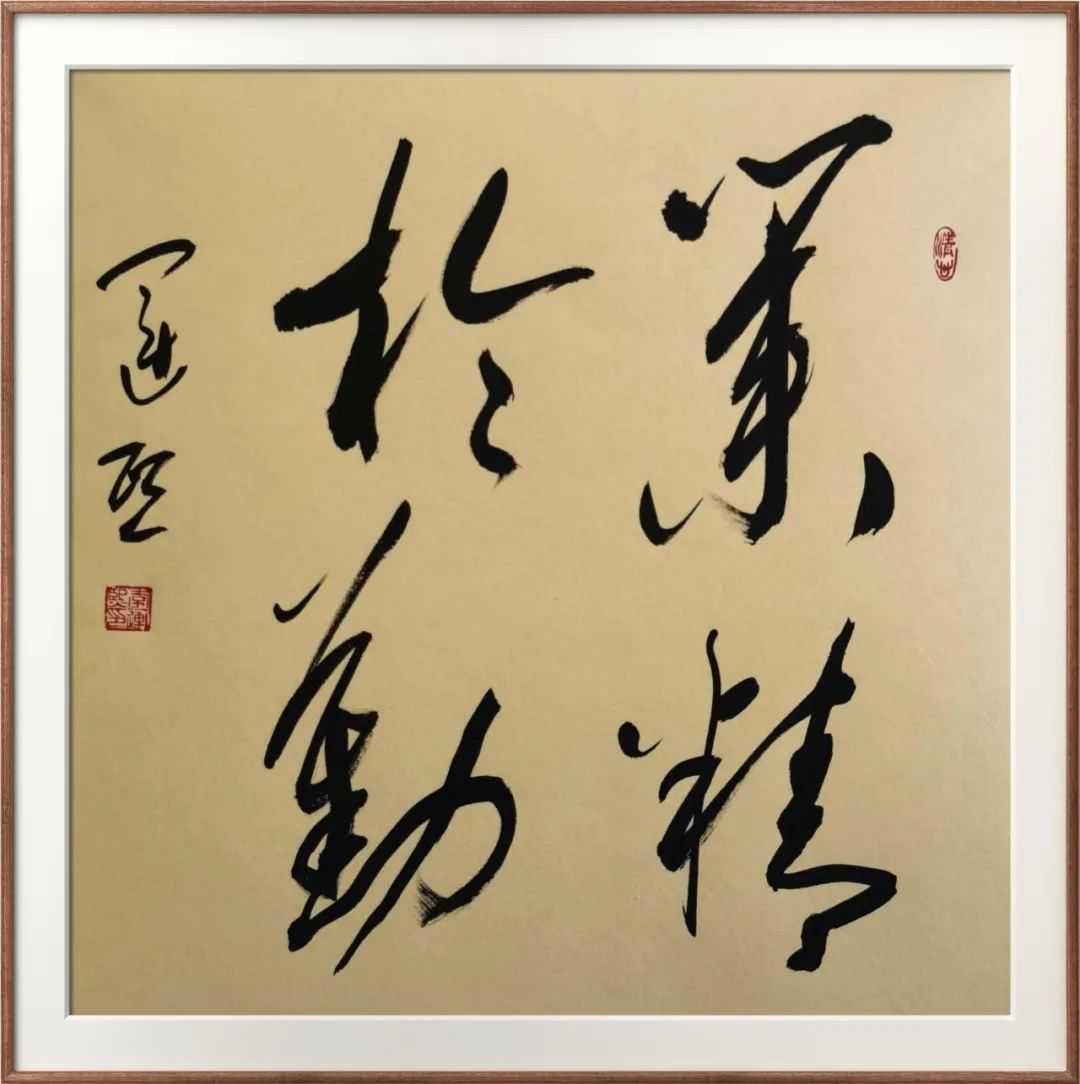 業精
於勤
運